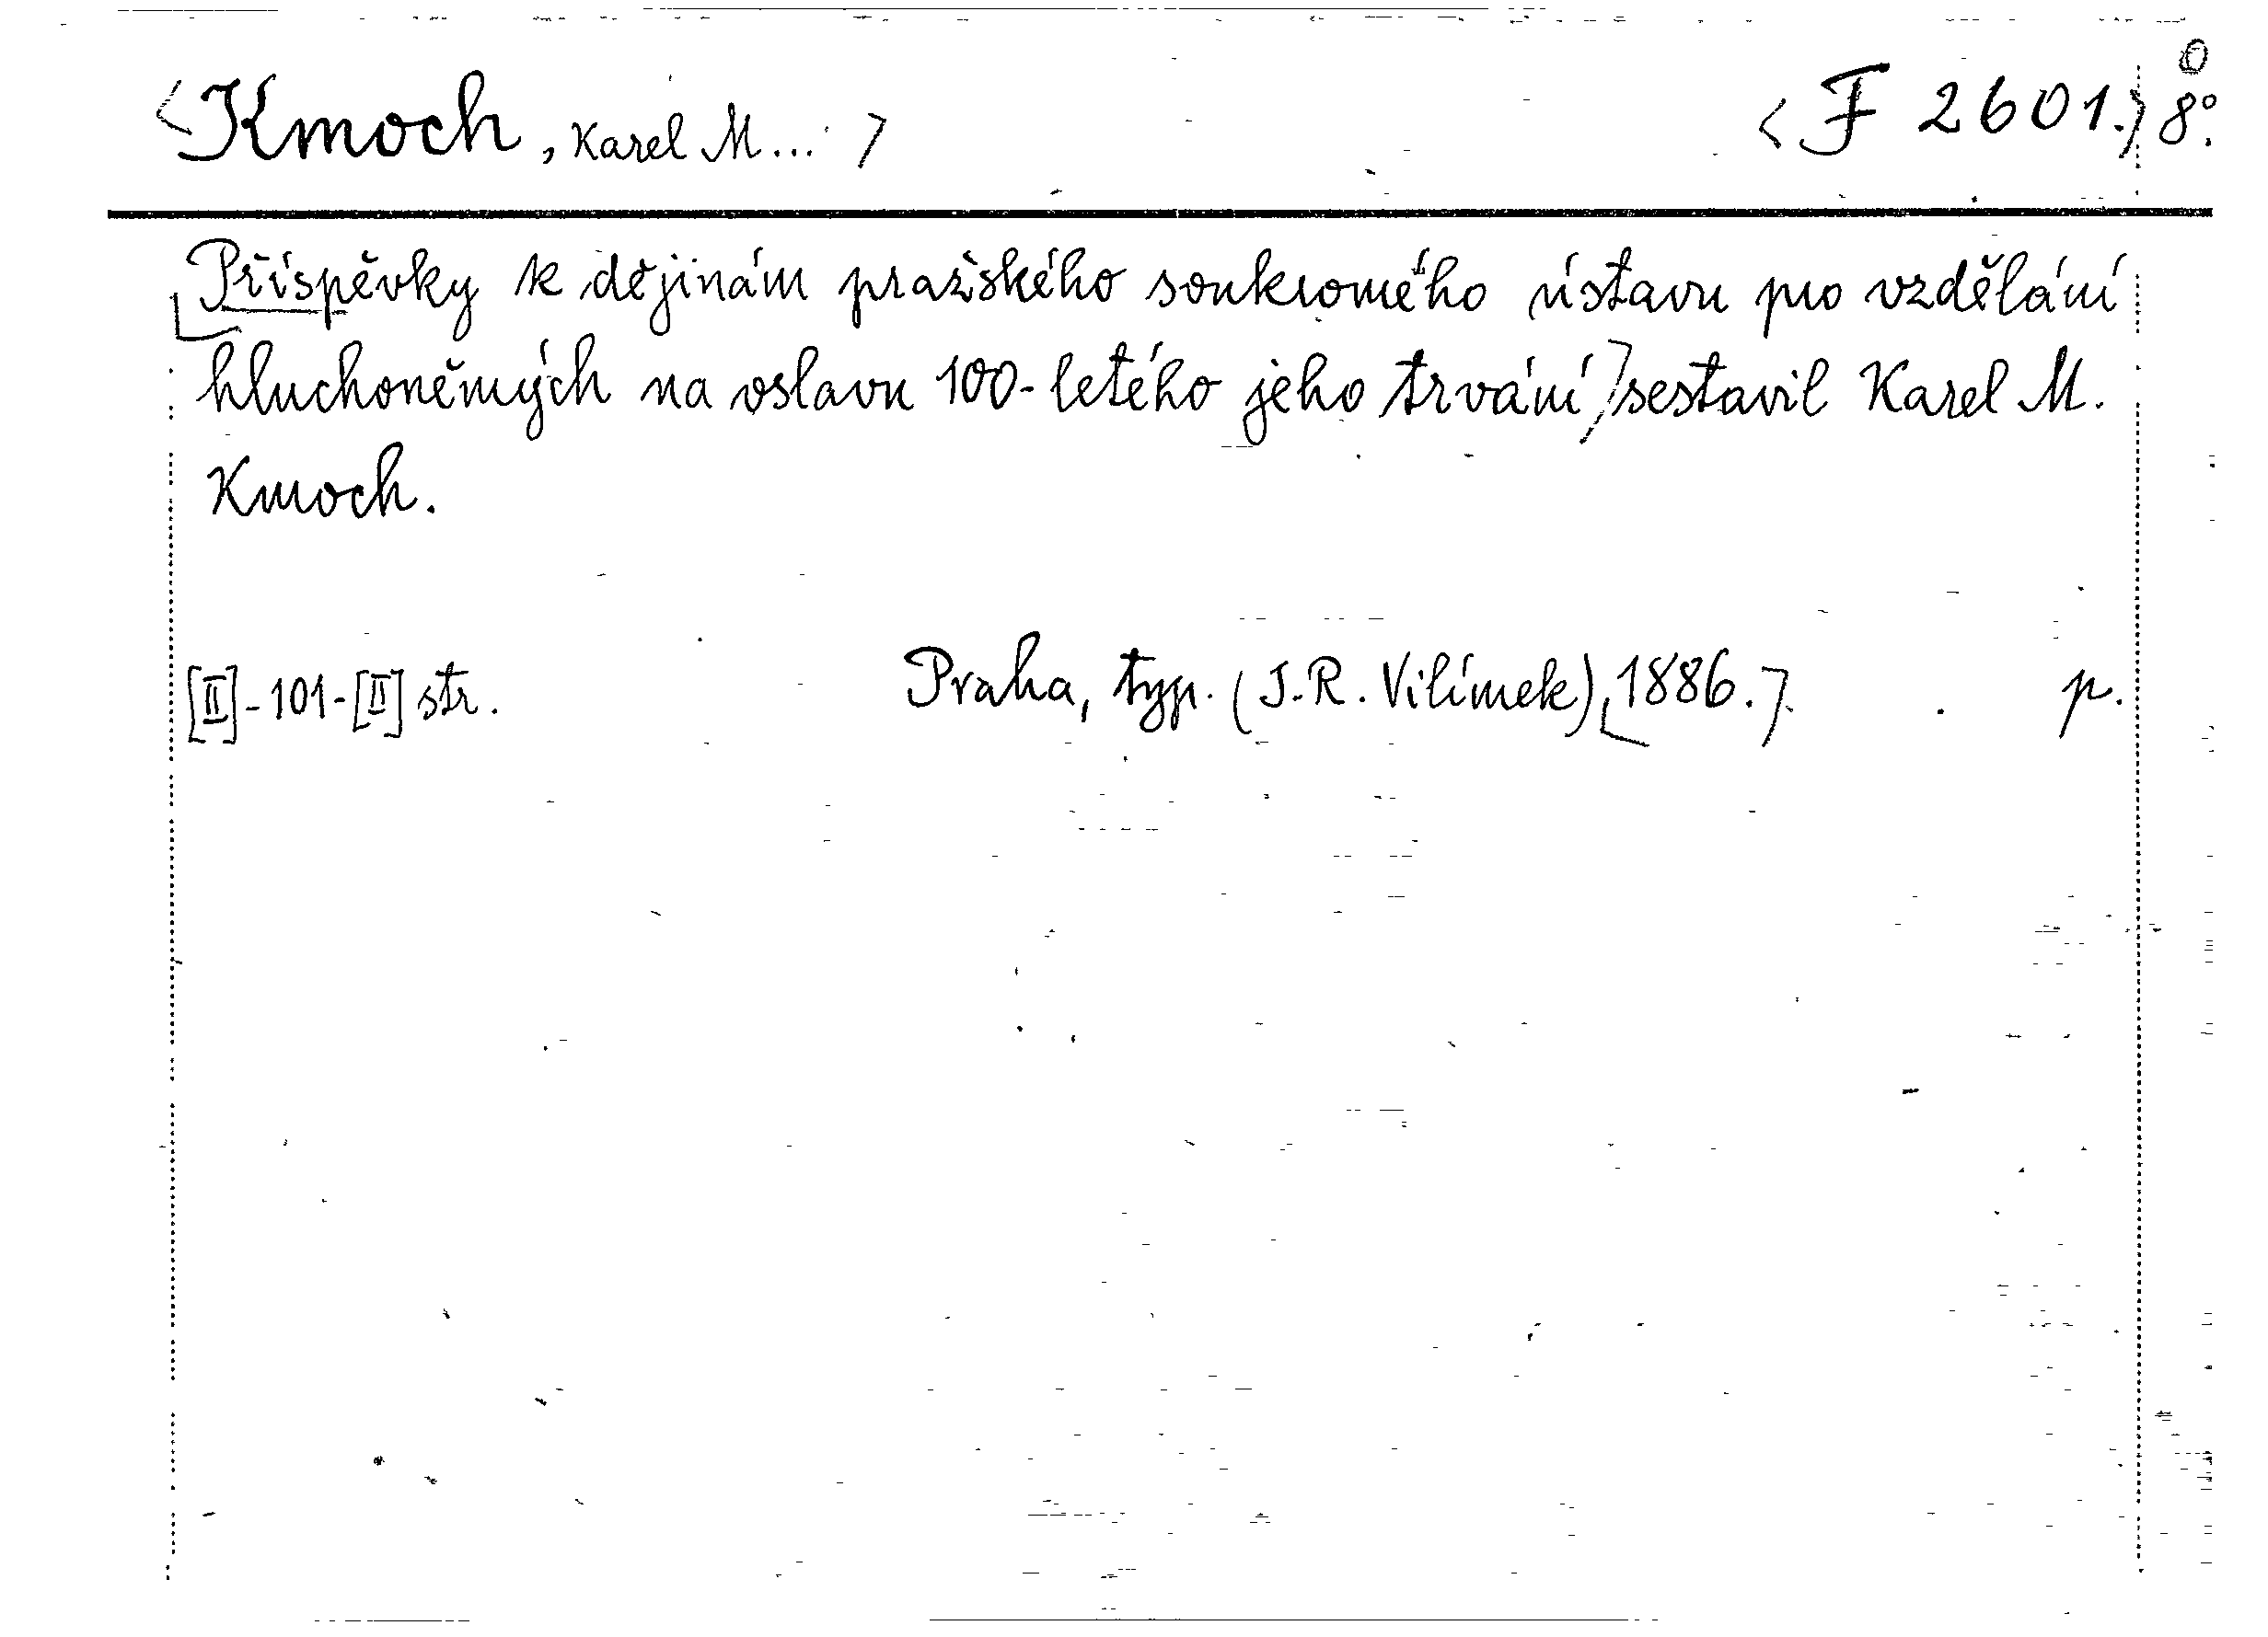 <Kmoch, Karel M...> <F 2601.> 8°.
[Příspěvky k dějinám pražského soukromého ústavu pro vzdělání
hluchoněmých na oslavu 100-letého jeho trvání] sestavil Karel M.
Kmoch.
[II]-101-[II] str. Praha, typ. (J.R. Vilímek), [1886.] p.